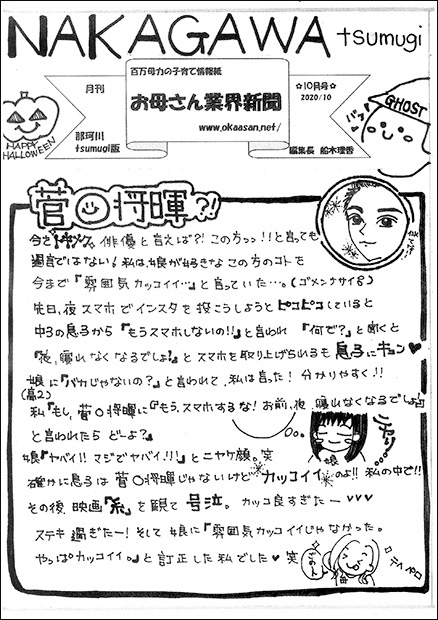 NAKAGAWA tsumugi
百万母力の子育て情報紙
月刊
お母さん業界新聞
☆10月号☆
2020/10
那珂川
tsumugi版
www.okaasan.net/
編集長 船木理香
HAPPY
HALLOWEEN
GHOST
バァ
菅〇将暉?!
俳優と言えば?!この方っっ!!と言っても
過言ではない!私は、娘が好きなこの方のコトを
今まで『雰囲気カッコイイ…』と言っていた…。(ゴメンナサイ
先日、夜スマホでインスタを投こうしようとピコピコしていると
中3の息子から『もうスマホしないの!!』と言われ『何で?』と聞くと
『夜、寝れなくなるでしょ!』とスマホを取り上げられるも息子にキュン♥
娘に『バカじゃないの?』と言われて、私は言った!分かりやすく!!
(高2)
私『もし、菅〇将暉に『もう、スマホするな!お前、夜 寝れなくなるでしょ
と言われたら どーよ?』
娘『ヤバイ!!マジでヤバイ!!!』とニヤケ顔。笑
娘
ニヤリ
確かに息子は菅〇将暉じゃないけどカッコイイのよ!!私の中で!!
その後、映画『糸』を観て号泣。カッコ良すぎたー
ステキ過ぎたー!そして娘に『雰囲気カッコイイじゃなかった。
やっぱカッコイイ。』と訂正した私でした♥笑
ごめん
テヘペロ